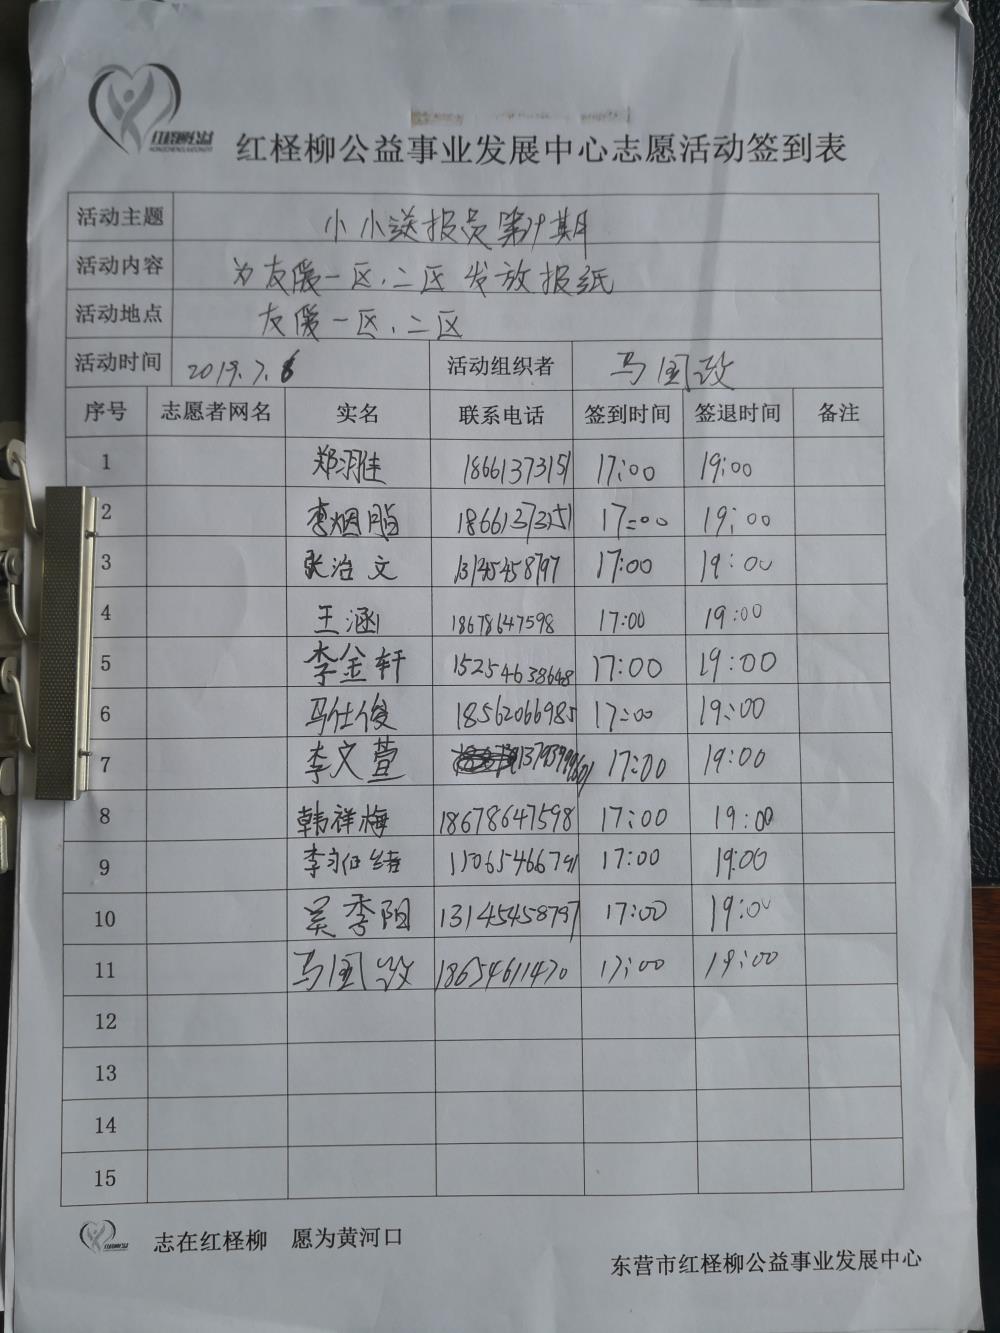 红柽柳公益
红柽柳公益事业发展中心志愿活动签到表
活动主题 小小送报员第廿期
活动内容 为友爱一区.二区发放报纸
活动地点 友爱一区.二区
活动时间 2019.7.6 活动组织者 马国政
序号 志愿者网名 实名 联系电话 签到时间 签退时间 备注
1 郑羽佳 18661373151 17:00 19:00
2 李烟脂 18661373151 17:00 19:00
3 张治文 13145458797 17:00 19:00
4 王涵 18678647598 17:00 19:00
5 李金轩 15254638648 17:00 19:00
6 马仕俊 18562066985 17:00 19:00
7 李文萱 17:00 19:00
8 韩祥梅 18678647598 17:00 19:00
9 15065466791 17:00 19:00
10 吴季阳 13145458797 17:00 19:00
11 马国政 18654611470 17:00 19:00
12
13
14
15
志在红柽柳 愿为黄河口
东营市红柽柳公益事业发展中心